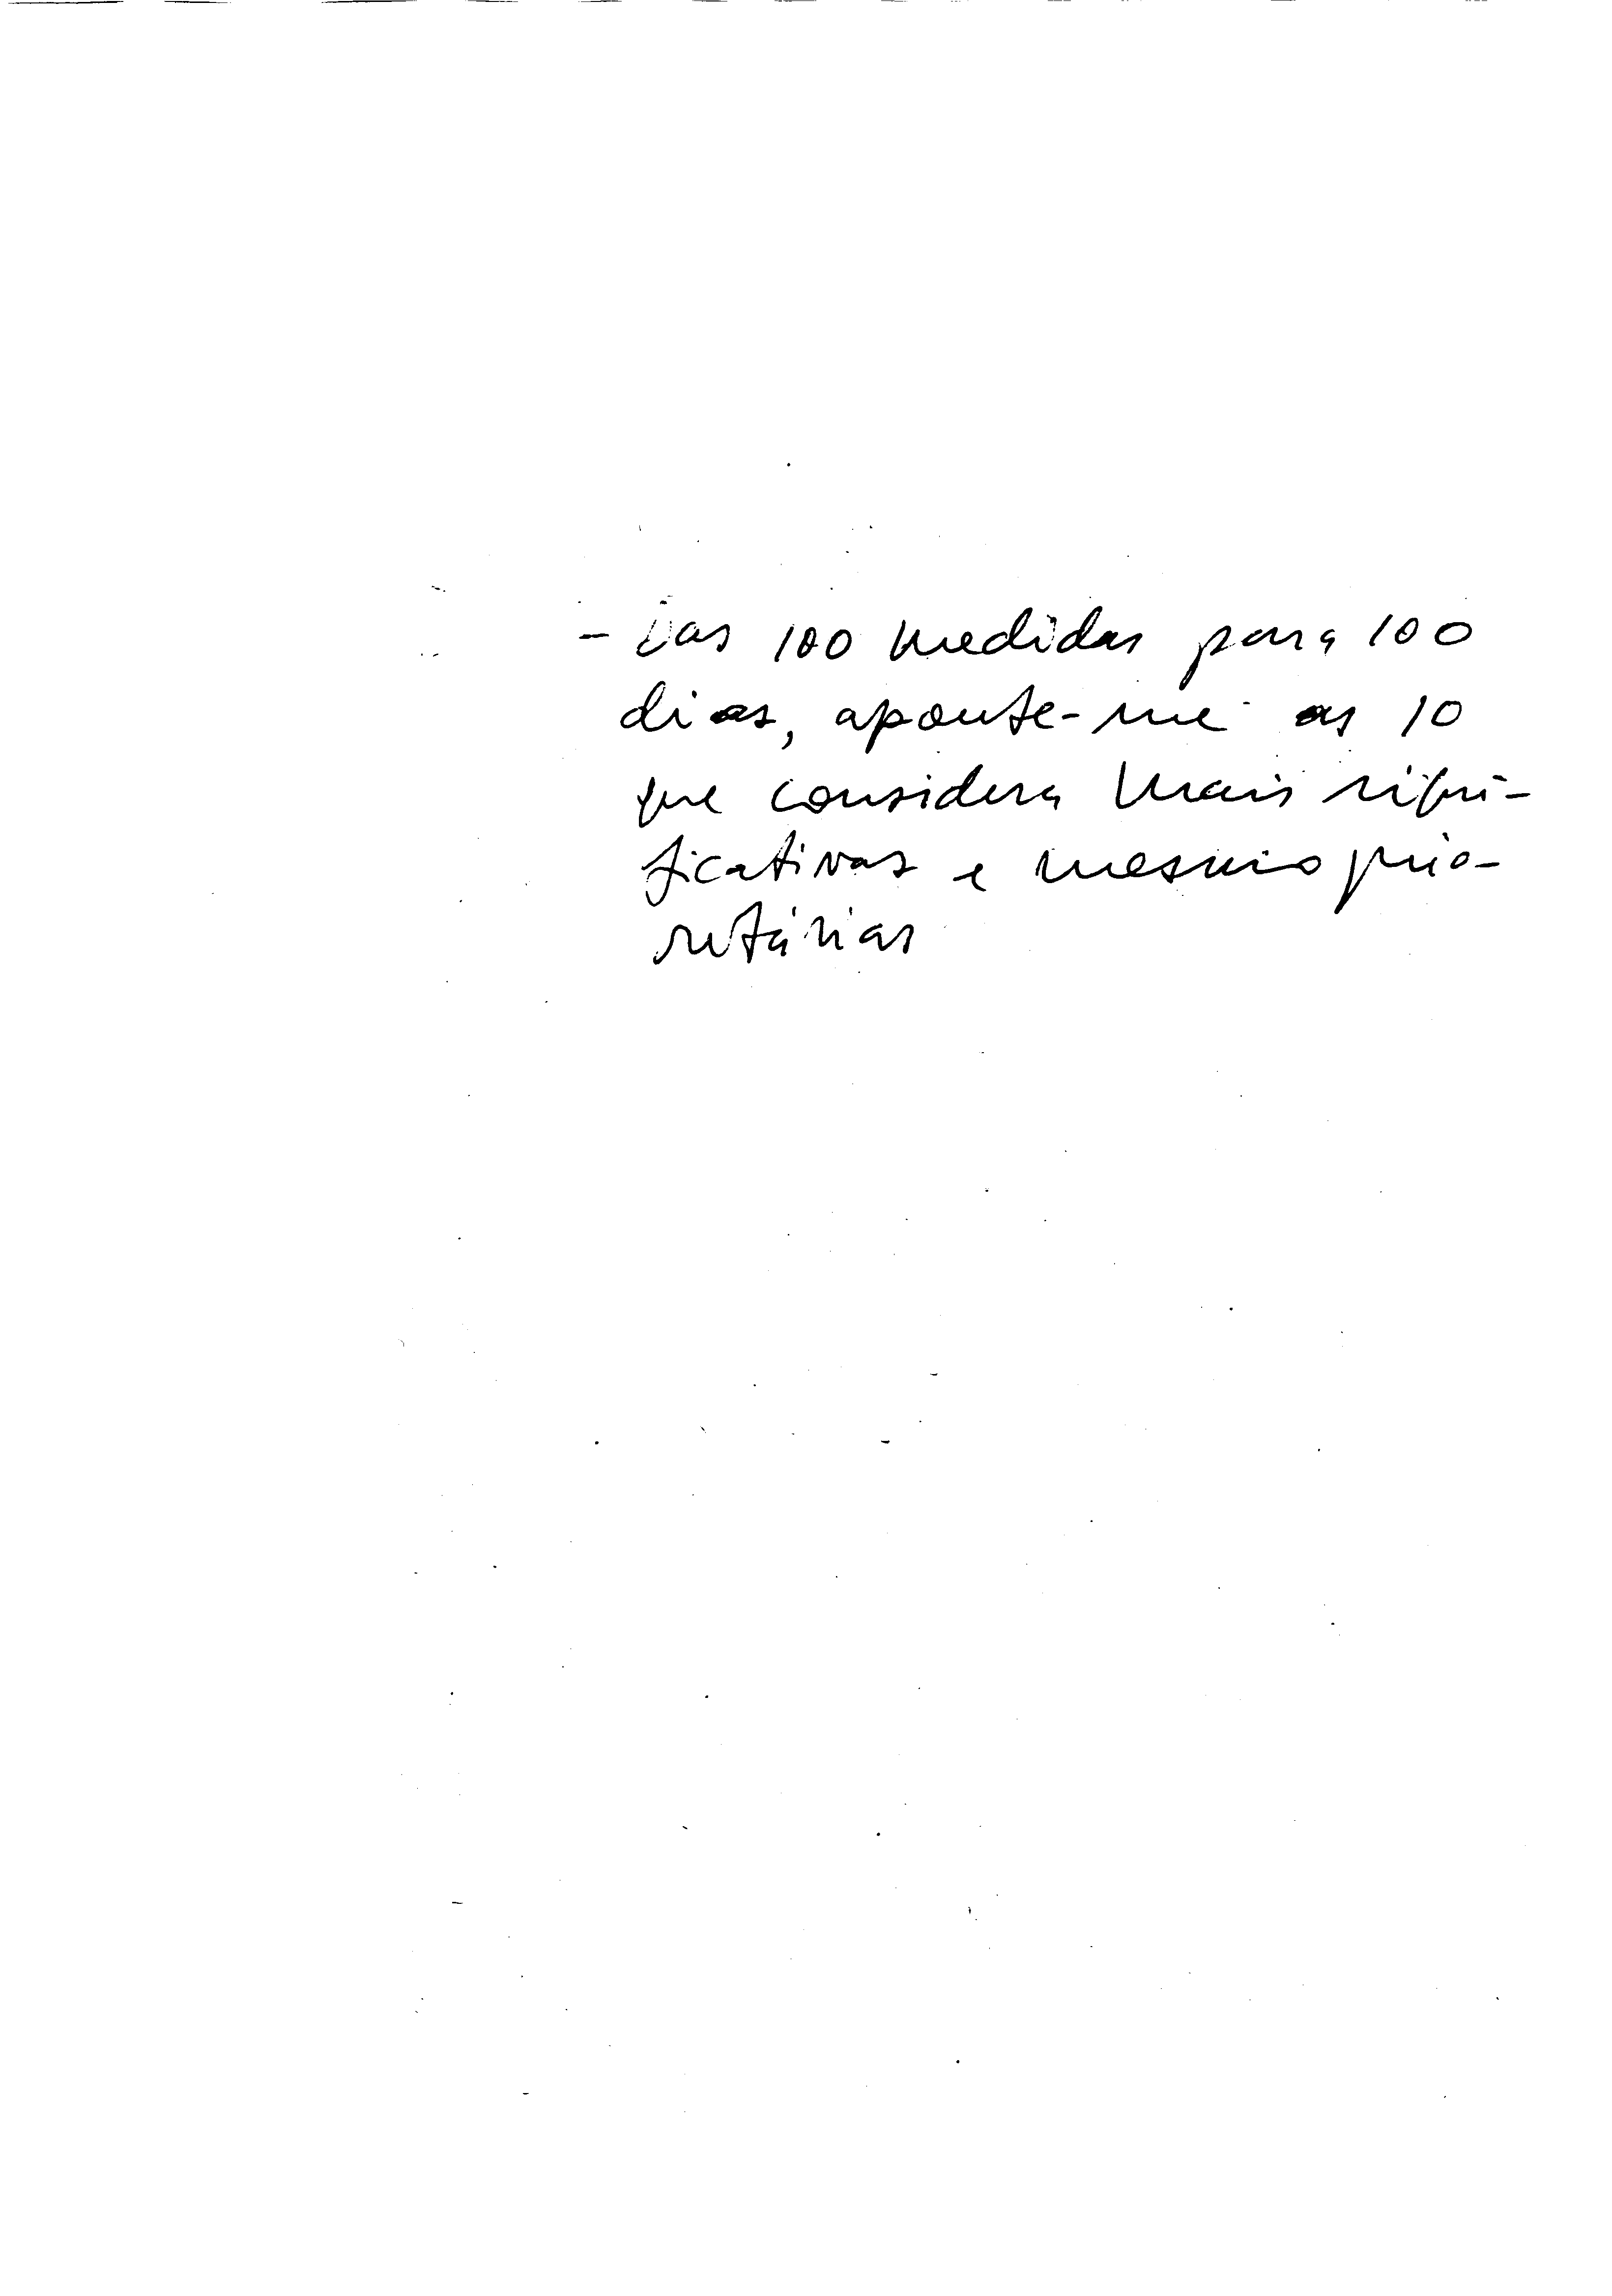 - Das 100 medidas para 100
dias, aponte-me as 10
que considera mais signi-
ficativas e mesmo prio-
ritárias